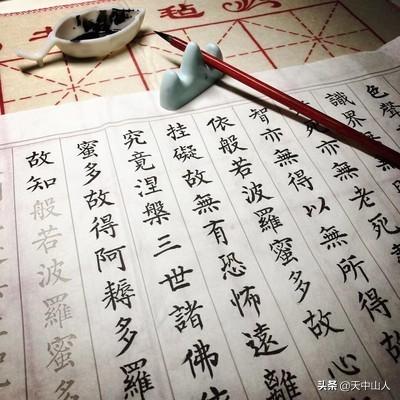 毡
色聲
識界
死亦無老死
智亦無得以無所得故
依般若波羅蜜多故心
挂礙故無有恐怖遠離
究竟涅槃三世諸佛
蜜多故得阿耨多羅
故知般若波羅蜜多
头条 @天中山人